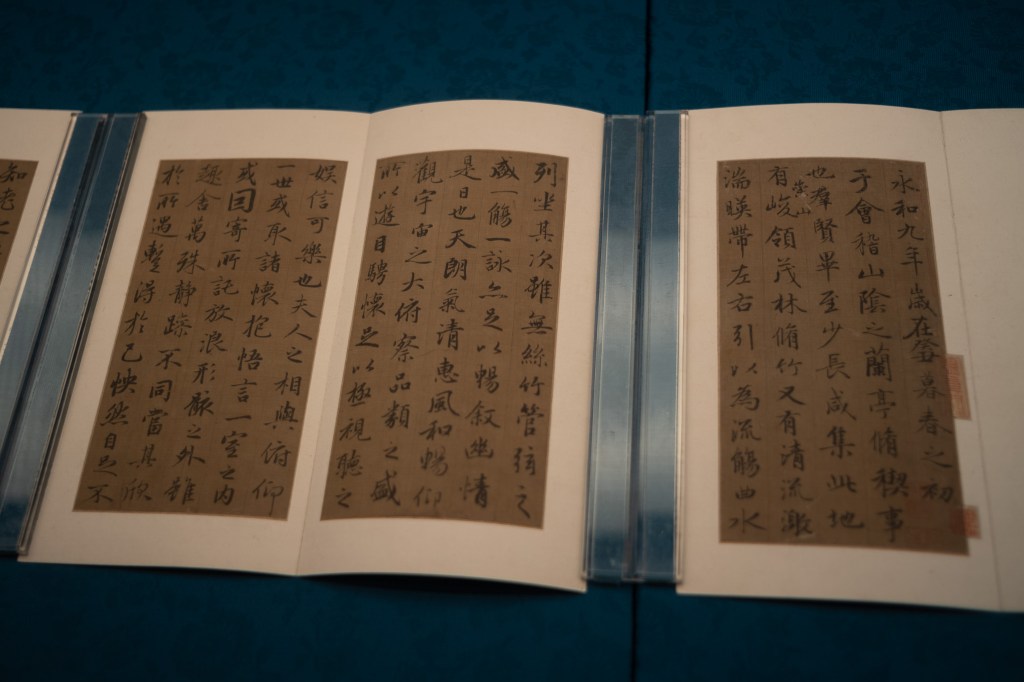 永和九年歲在癸丑暮春之初
于會稽山陰之蘭亭脩稧事
也羣賢畢至少長咸集此地
有崇山峻領茂林脩竹又有清流激
湍暎帶左右引以為流觴曲水
列坐其次雖無絲竹管弦之
盛一觴一詠亦足以暢敘幽情
是日也天朗氣清惠風和暢仰
觀宇宙之大俯察品類之盛
所以遊目騁懷足以極視聽之
娛信可樂也夫人之相與俯仰
一世或取諸懷抱悟言一室之內
或因寄所託放浪形骸之外雖
趣舍萬殊靜躁不同當其欣
於所遇暫得於己怏然自足不
知老